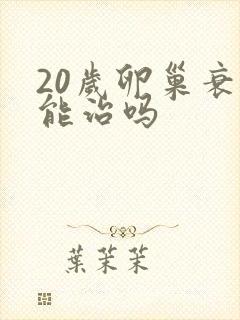 20歲卵巢衰
能治吗
葉茉茉